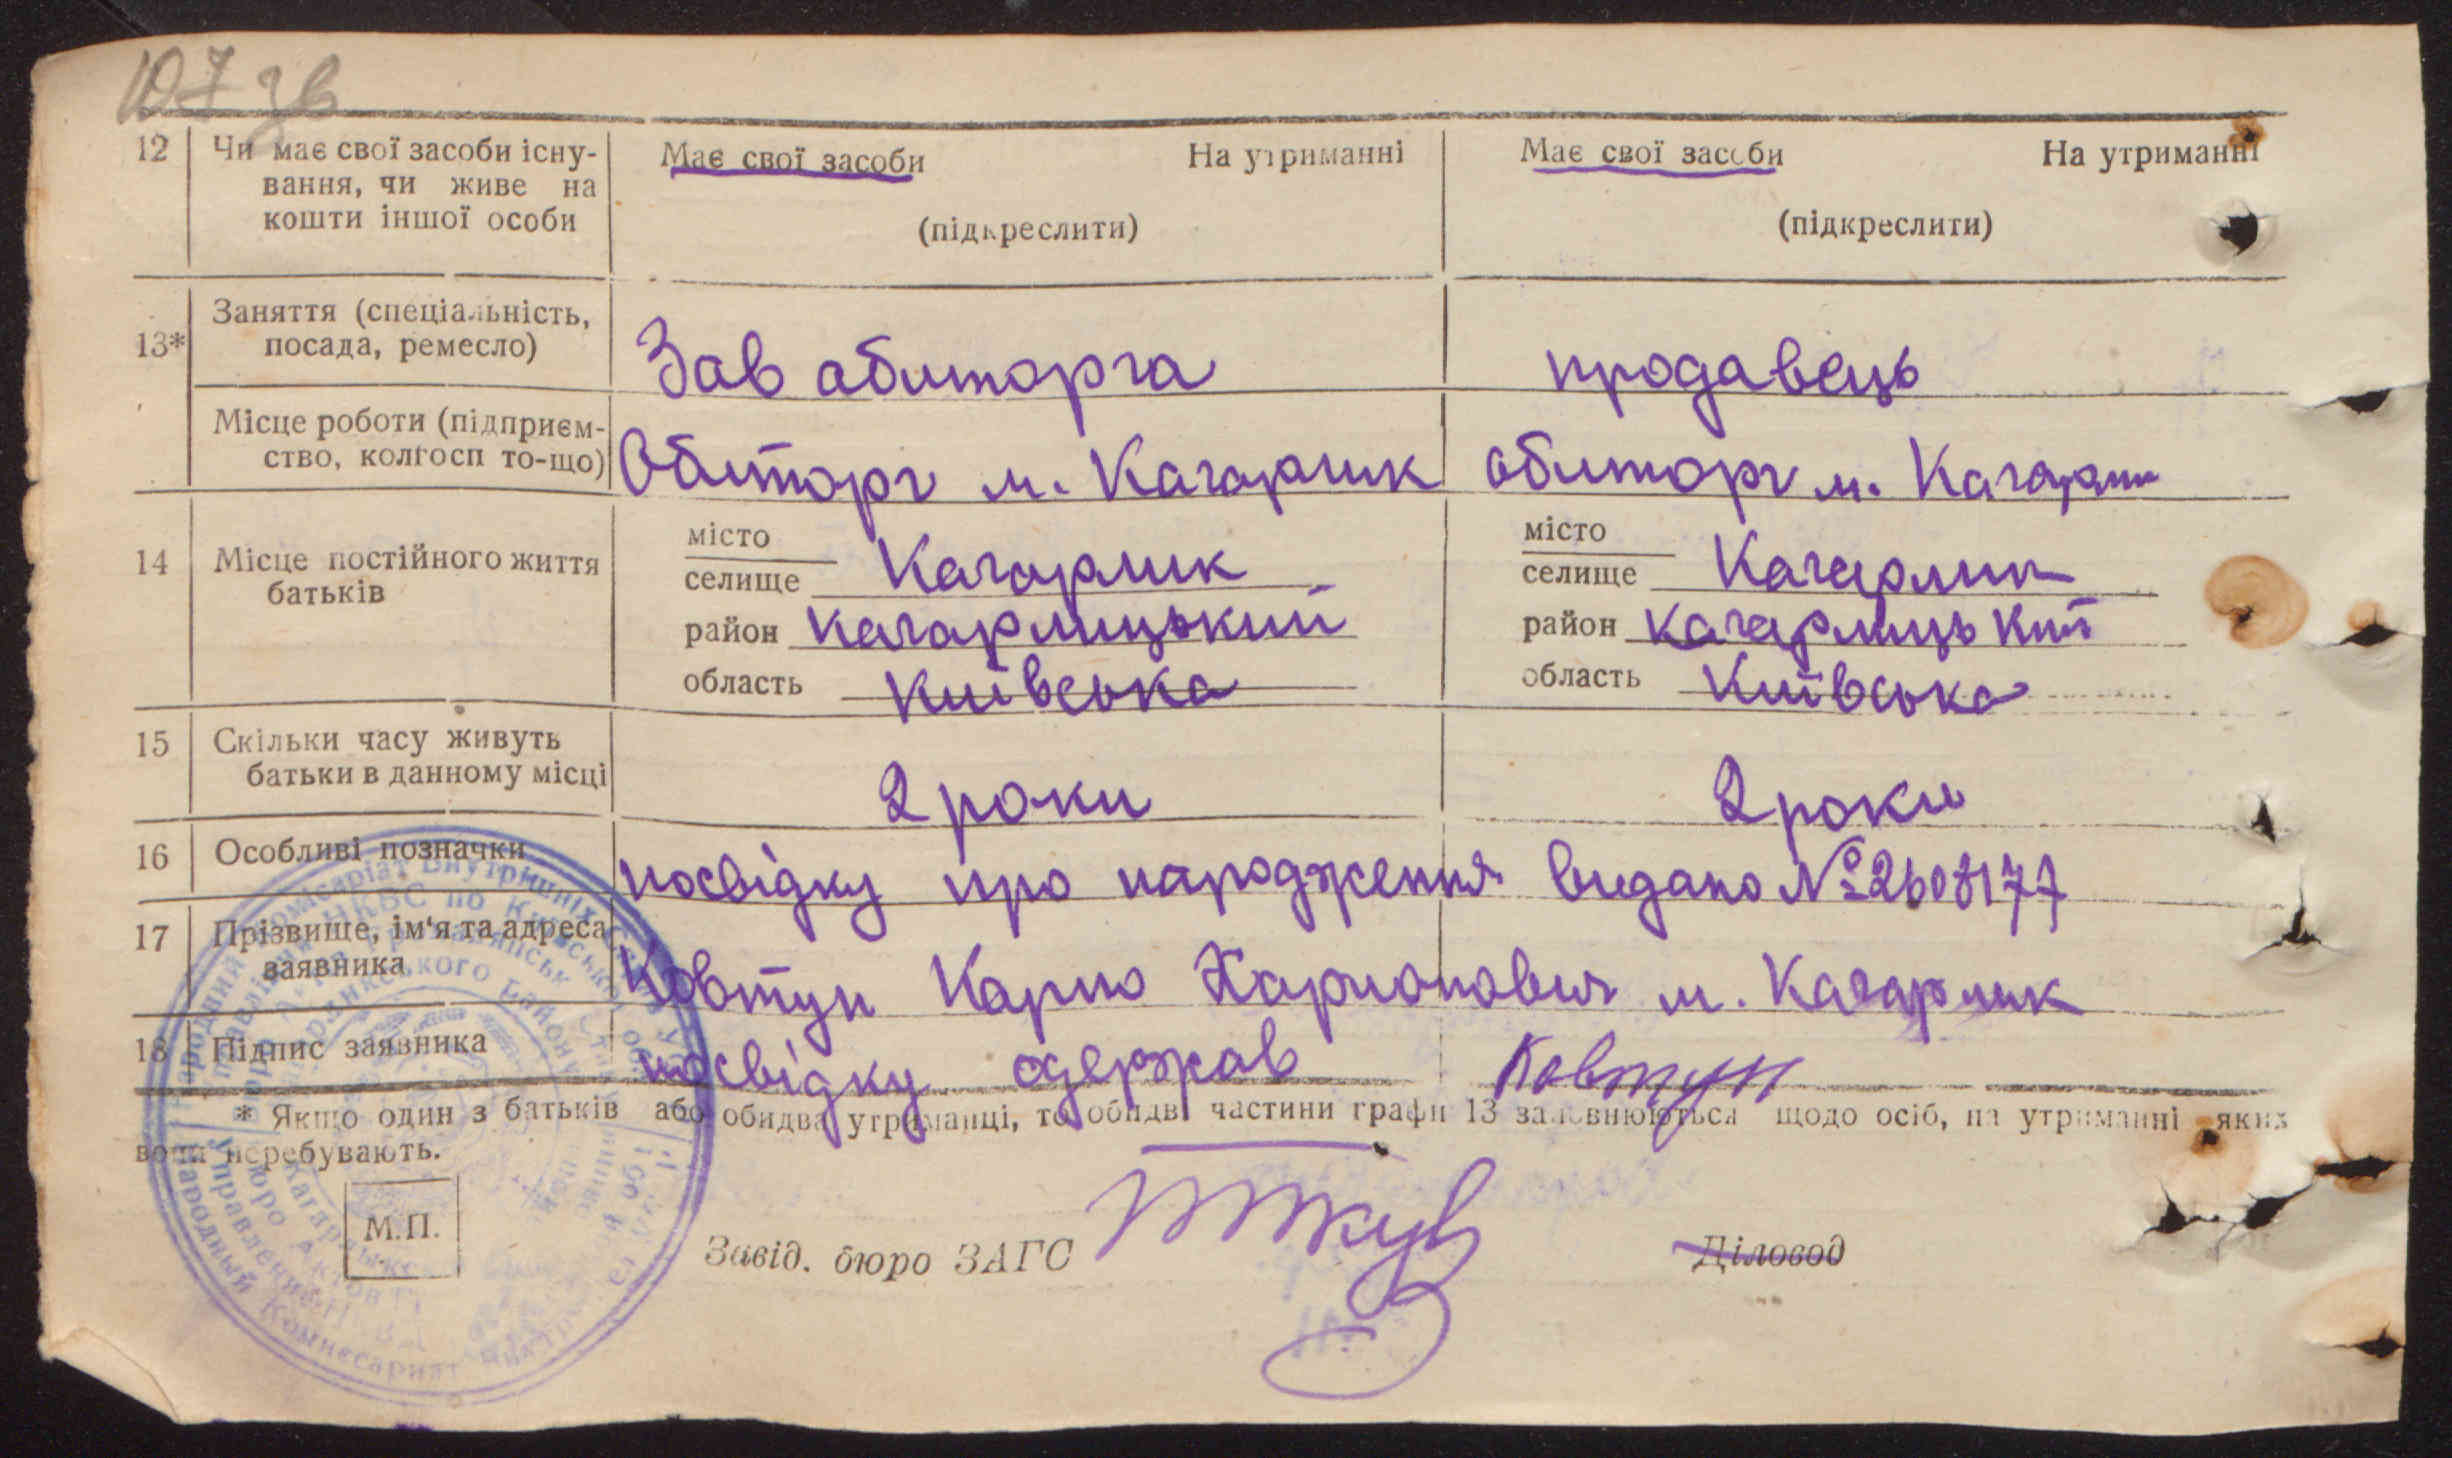 107 зв
12 Чи має свої засоби існу- Має свої засоби На утриманні Має свої засоби На утриманні
вання, чи живе на
кошти іншої особи (підкреслити) (підкреслити)
Заняття (спеціальність,
13* посада, ремесло) Зав облторга продавець
Місце роботи (підприєм-
ство, колгосп то-що) Облторг м. Кагарлик облторг м. Кагарлик
місто місто
14 Місце постійного життя селище Кагарлик селище Кагарлик
батьків район Кагарлицький район Кагарлицький
область Київська область Київська
15 Скільки часу живуть
батьки в данному місці 2 роки 2 роки
16 Особливі позначки посвідку про народження видано № 2608177
17 Прізвище, ім'я та адреса
заявника Ковтун Карпо м. Кагарлик
18 Підпис заявника посвідку одержав Ковтун
* Якщо один з батьків або обидва утриманці, то обидві частини графи 13 заповнюються щодо осіб, на утриманні яких
вони перебувають.
М.П.
Завід. бюро ЗАГС Діловод